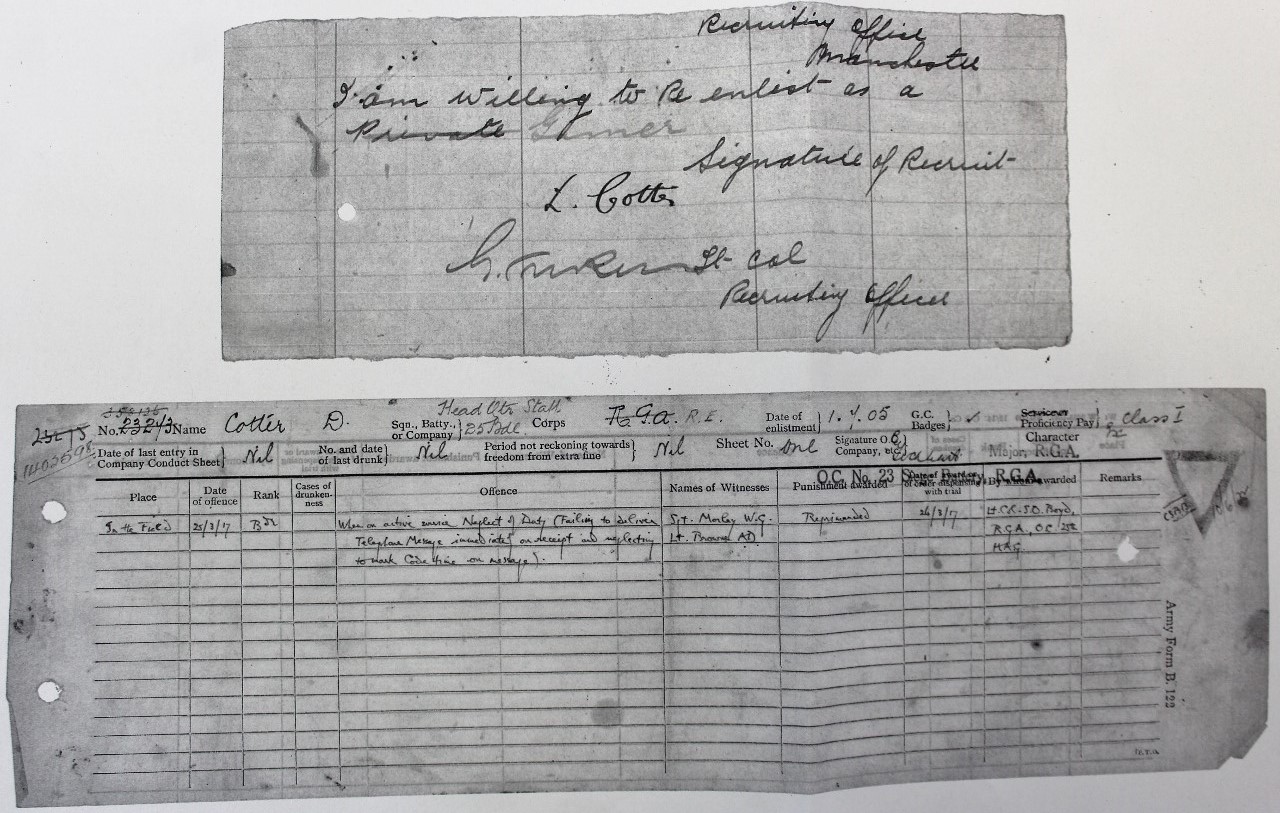 Recruiting Office
Manchester
I am willing to Re enlist as a
Private Gunner
Signature of Recruit
L. Cotter
Lt Col
Recruiting Officer
No. 23243 Name Cotter D. Sqn., Batty., or Company Head Qtr Staff Corps R.G.A. R.E. Date of enlistment 1.7.05 G.C. Badges Proficiency Pay Class I
Date of last entry in Company Conduct Sheet Nil No. and date of last drunk Nil Period not reckoning towards freedom from extra fine Nil Sheet No. One Signature O.C. Company, etc. Character
Major, R.G.A.
O.C. No. 23 R.G.A.
Place Date of offence Rank Cases of drunkenness Offence Names of Witnesses Punishment awarded Date of award or of order dispensing with trial By whom awarded Remarks
In the Field 25/3/17 Bdr When on active service Neglect of Duty (Failing to deliver Sgt. Morley W.G. Reprimanded 26/3/17 Lt. Col. Boyd,
Telephone Message immediately on receipt and neglecting Lt. Browne R.G.A. O.C.
to mark Code time on message). HAG
Army Form B. 122